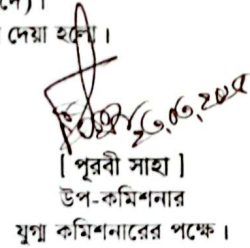 দেয়া হলো।
[ পূরবী সাহা ]
উপ-কমিশনার
যুগ্ম কমিশনারের পক্ষে।